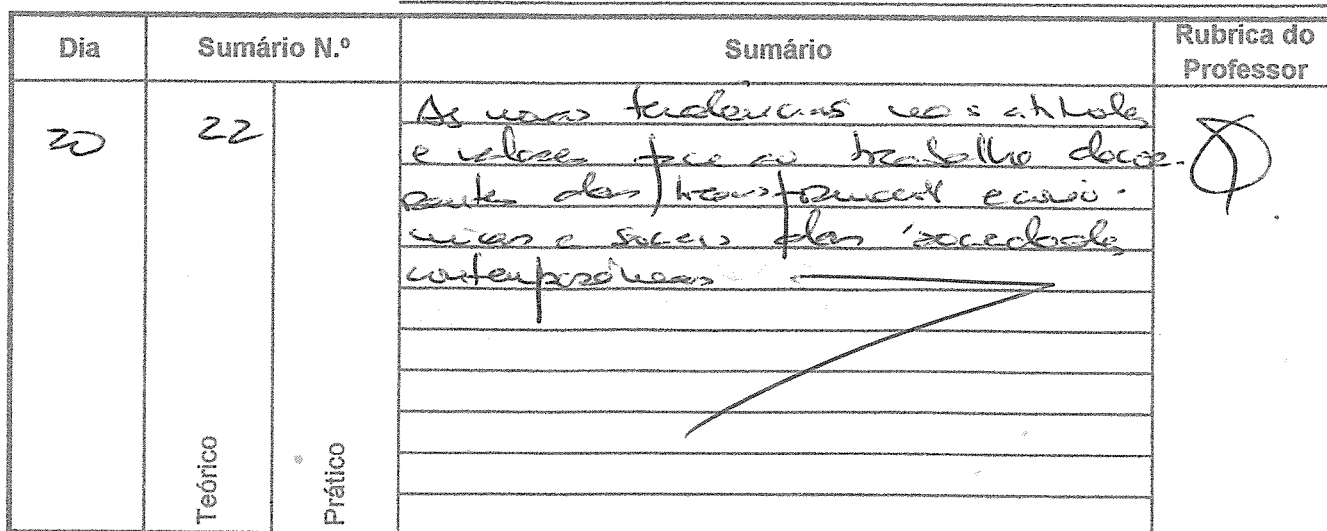 Dia Sumário N.º Sumário Rubrica do Professor
20 22
As novas tendências nas atitudes
e valores face ao trabalho decor-
rentes das transformações econó-
micas e sociais das sociedades
contemporâneas
Teórico Prático